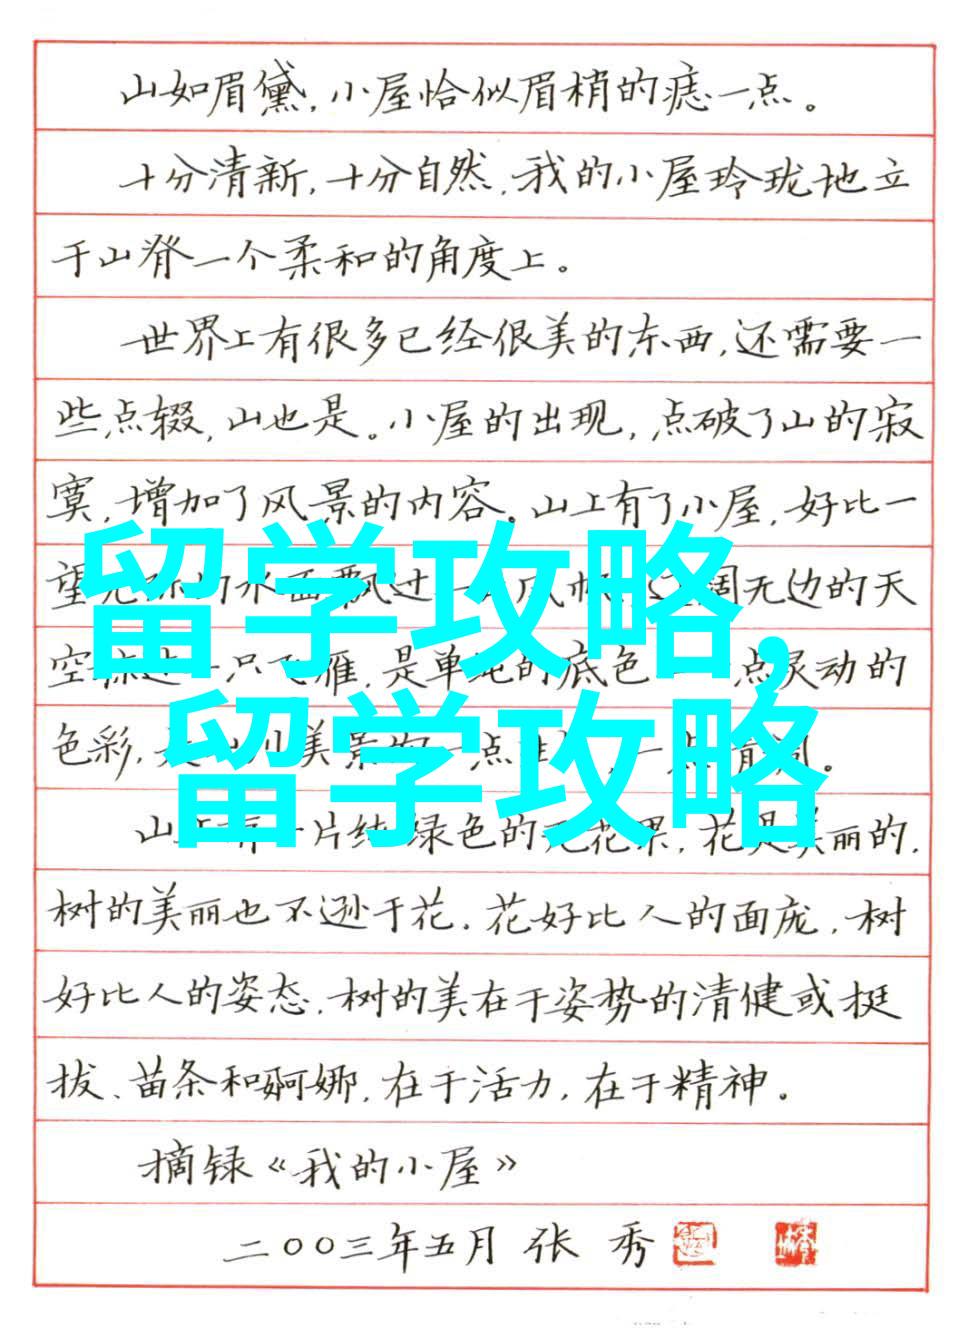 山如眉黛,小屋恰似眉梢的痣一点。
十分清新,十分自然,我的小屋玲珑地立
于山脊一个柔和的角度上。
世界上有很多已经很美的东西,还需要一
些点缀,山也是。小屋的出现,点破了山的寂
寞,增加了风景的内容。山上有了小屋,好比一
望 水面飘过 无边的天
空 只 雁,是单纯的底色 点灵动的
色彩, 美景的一点 一
留学攻略,
留学攻略
山 一片纯绿色的无花果,花是美丽的,
树的美丽也不逊于花。花好比人的面庞,树
好比人的姿态。树的美在于姿势的清健或挺
拔、苗条和婀娜,在于活力,在于精神。
摘录《我的小屋》
二〇〇三年五月 张 秀